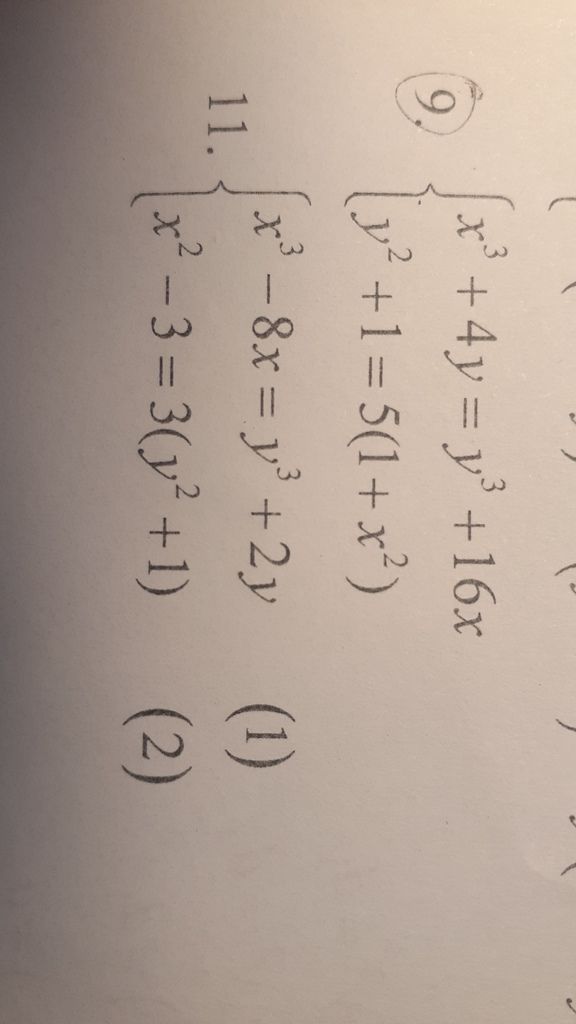 9. { x³ + 4y = y³ + 16x
y² + 1 = 5(1 + x²)
11. { x³ − 8x = y³ + 2y (1)
x² − 3 = 3(y² + 1) (2)